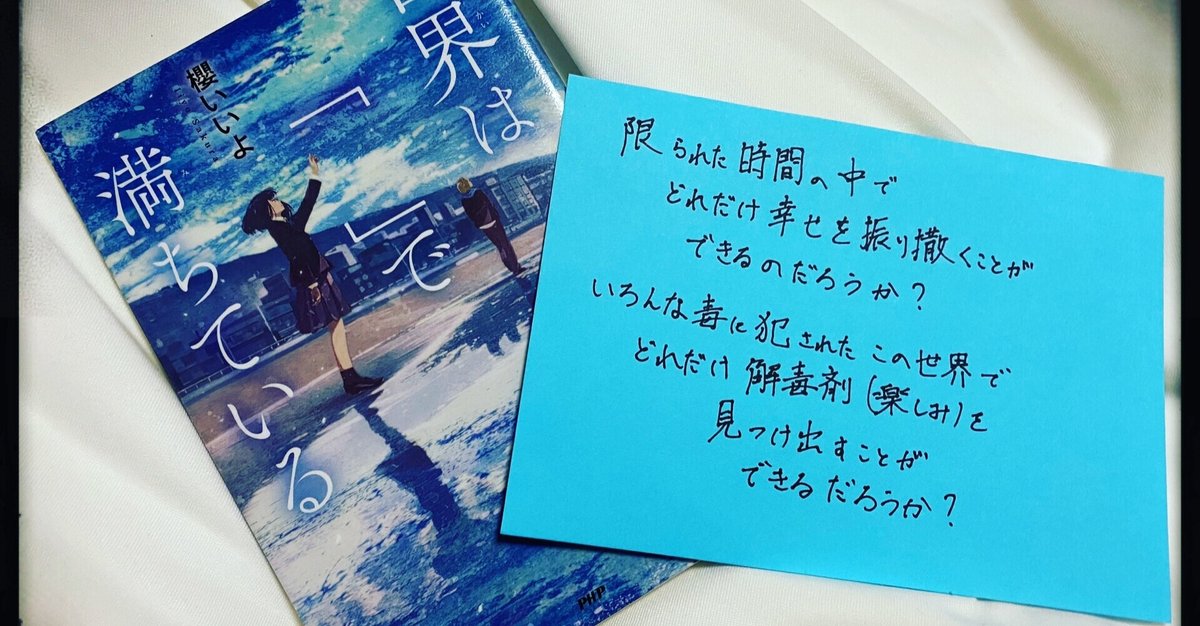 界は
かい
「 」で
満ちている
み
櫻いいよ
PHP
限られた時間の中で
どれだけ幸せを振り撒くことが
できるのだろうか？
いろんな毒に犯されたこの世界で
どれだけ解毒剤(楽しみ)を
見つけ出すことが
できるだろうか？